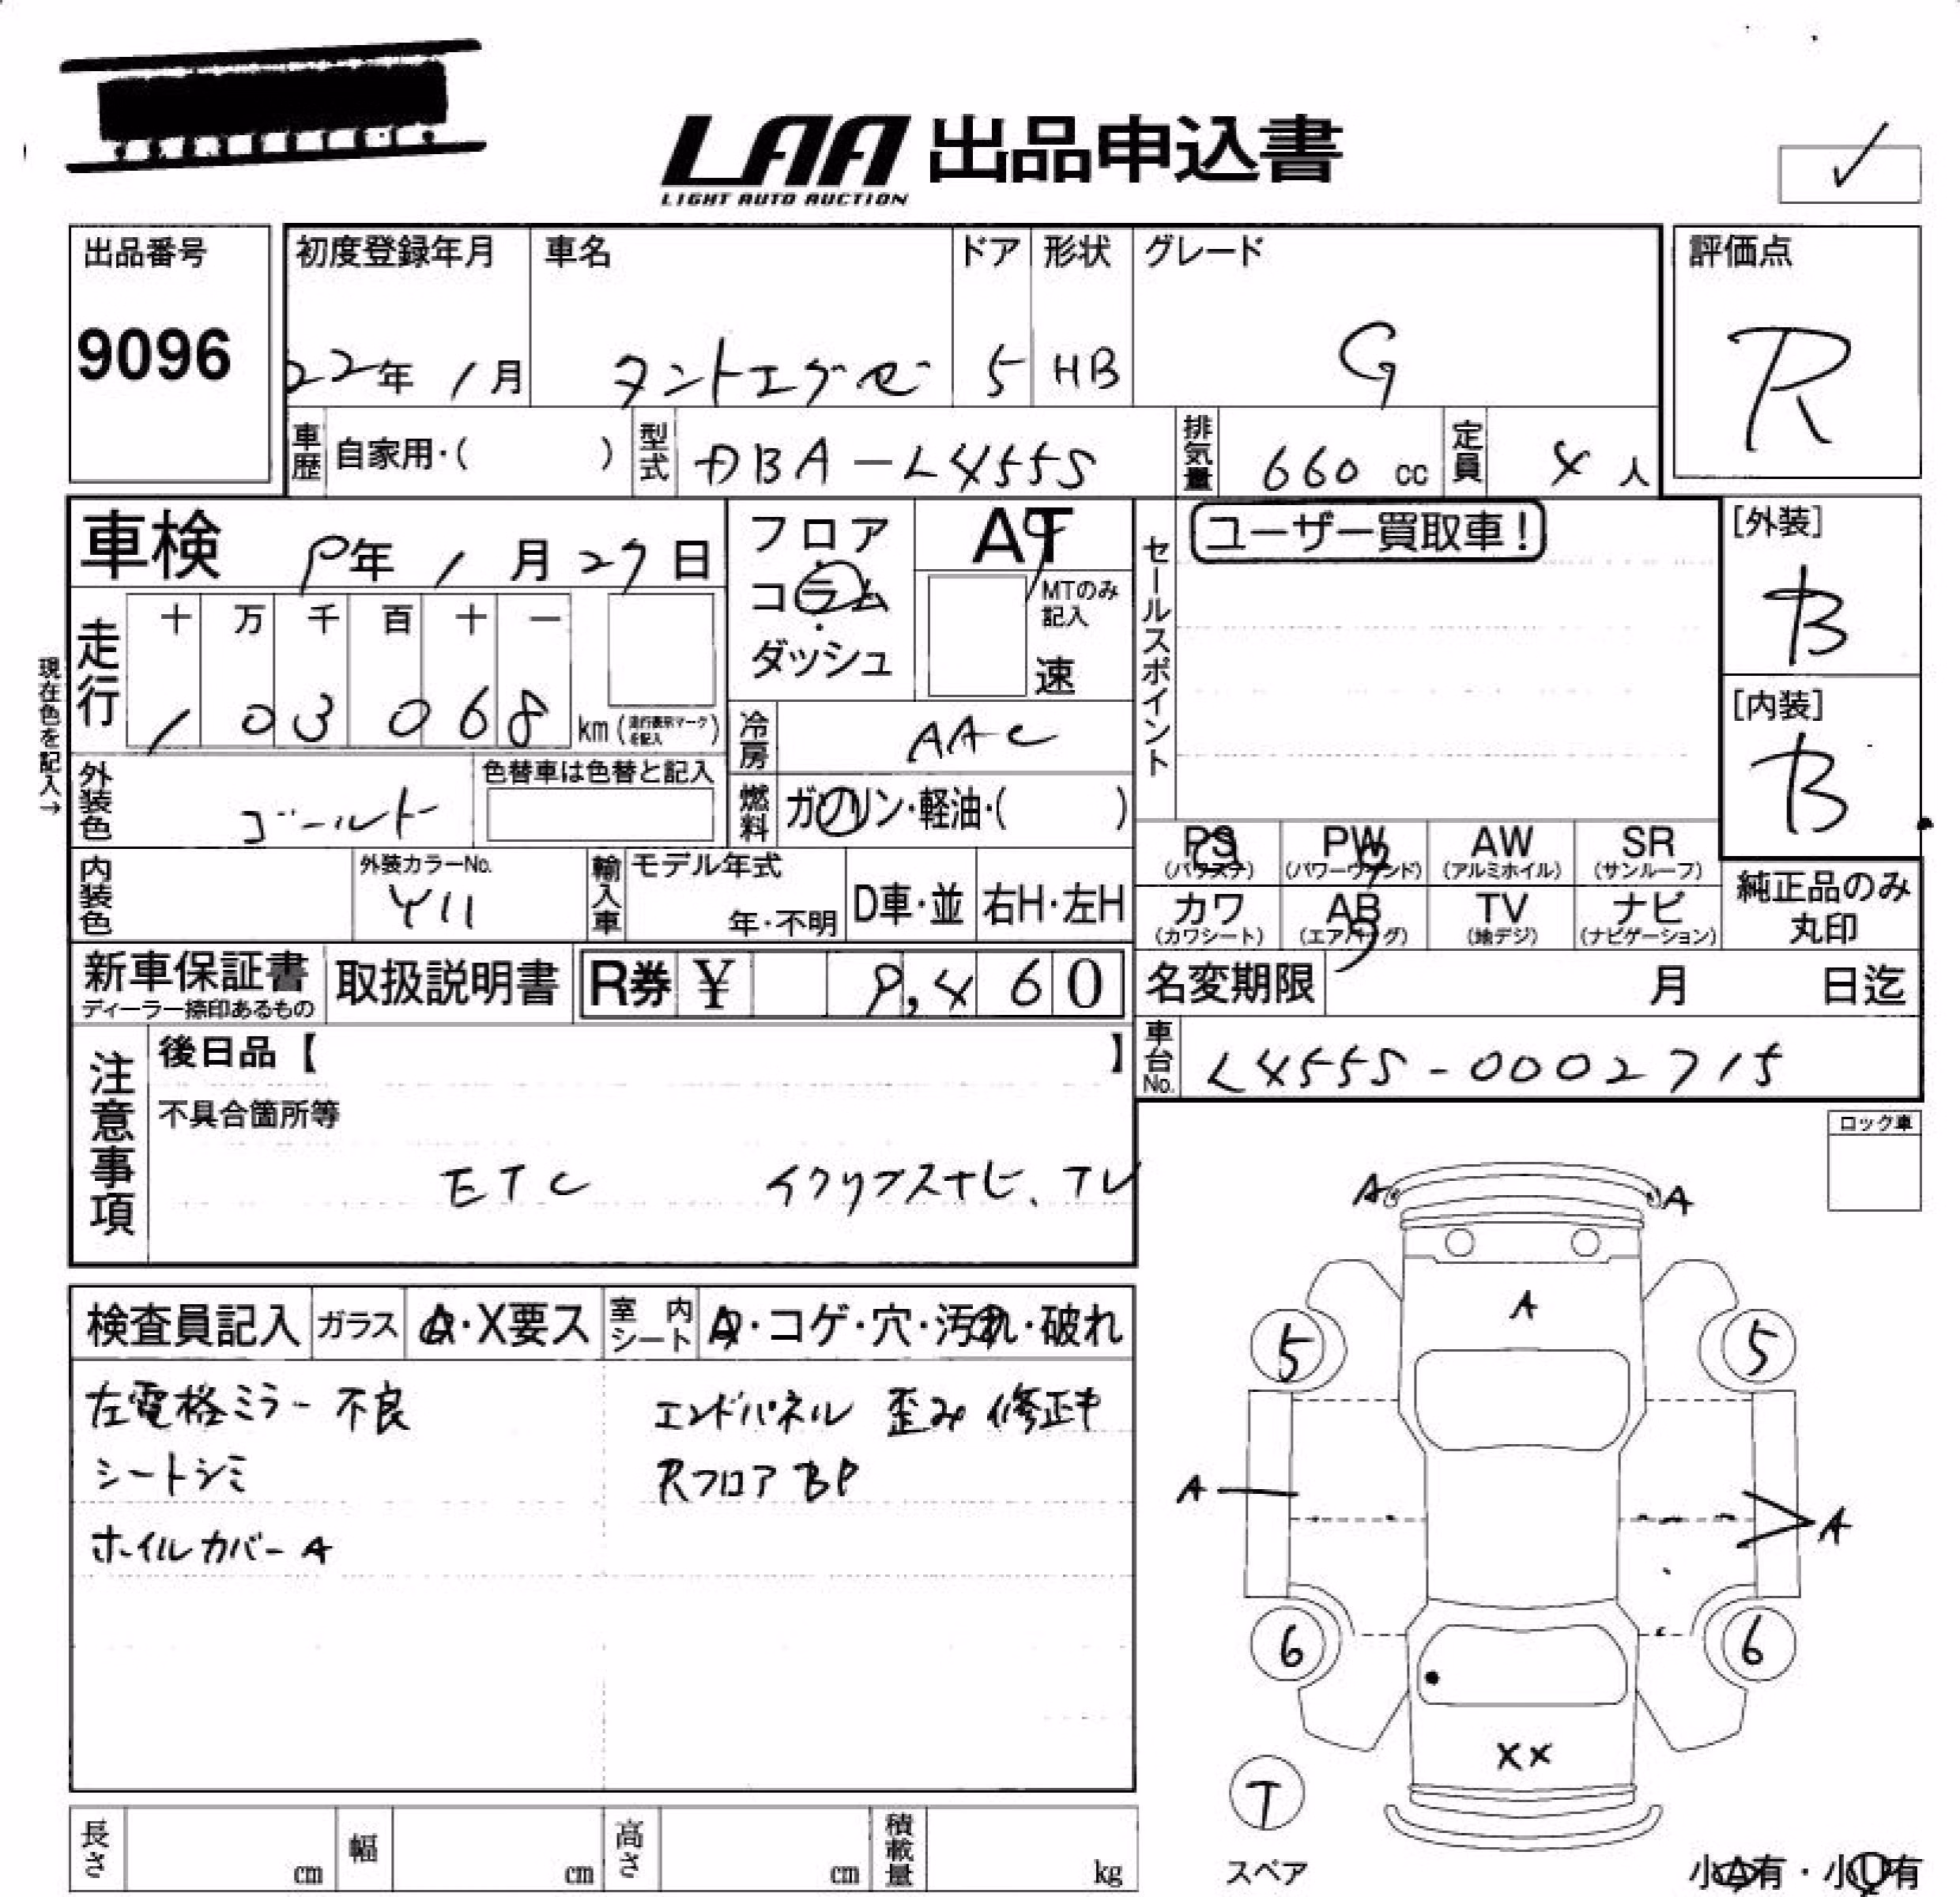 LAA 出品申込書
LIGHT AUTO AUCTION
出品番号
9096
初度登録年月
22年 1月
車名
タントエグゼ
ドア
5
形状
HB
グレード
G
評価点
R
車歴 自家用・( )
型式 DBA-L455S
排気量 660 cc
定員 4人
車検 9年 1月29日
フロア・コラム・ダッシュ
AT
MTのみ記入
速
現在色を記入→
走行
十 万 千 百 十 一
1 0 3 0 6 8 km (走行表示マークを記入)
冷房 AAC
外装色 ゴールト
色替車は色替と記入
燃料 ガソリン・軽油・( )
内装色
外装カラーNo.
Y11
輸入車 モデル年式
年・不明
D車・並
右H・左H
セールスポイント
ユーザー買取車!
[外装]
B
[内装]
B
PS (パワステ)
PW (パワーウィンド)
AW (アルミホイル)
SR (サンルーフ)
カワ (カワシート)
AB (エアバッグ)
TV (地デジ)
ナビ (ナビゲーション)
純正品のみ丸印
新車保証書
ディーラー捺印あるもの
取扱説明書
R券 ¥ 9,460
名変期限 月 日迄
車台No. L455S-0002715
注意事項
後日品【 】
不具合箇所等
ETC イクリプスナビ、TV
ロック車
検査員記入
ガラス A・X要ス
室内シート A・コゲ・穴・汚れ・破れ
左電格ミラー不良
シートシミ
ホイルカバーA
エンドパネル 歪み 修正中
Rフロア BP
A A
A
5 5
A A
6 6
XX
T
スペア
長さ cm
幅 cm
高さ cm
積載量 kg
小A有・小U有